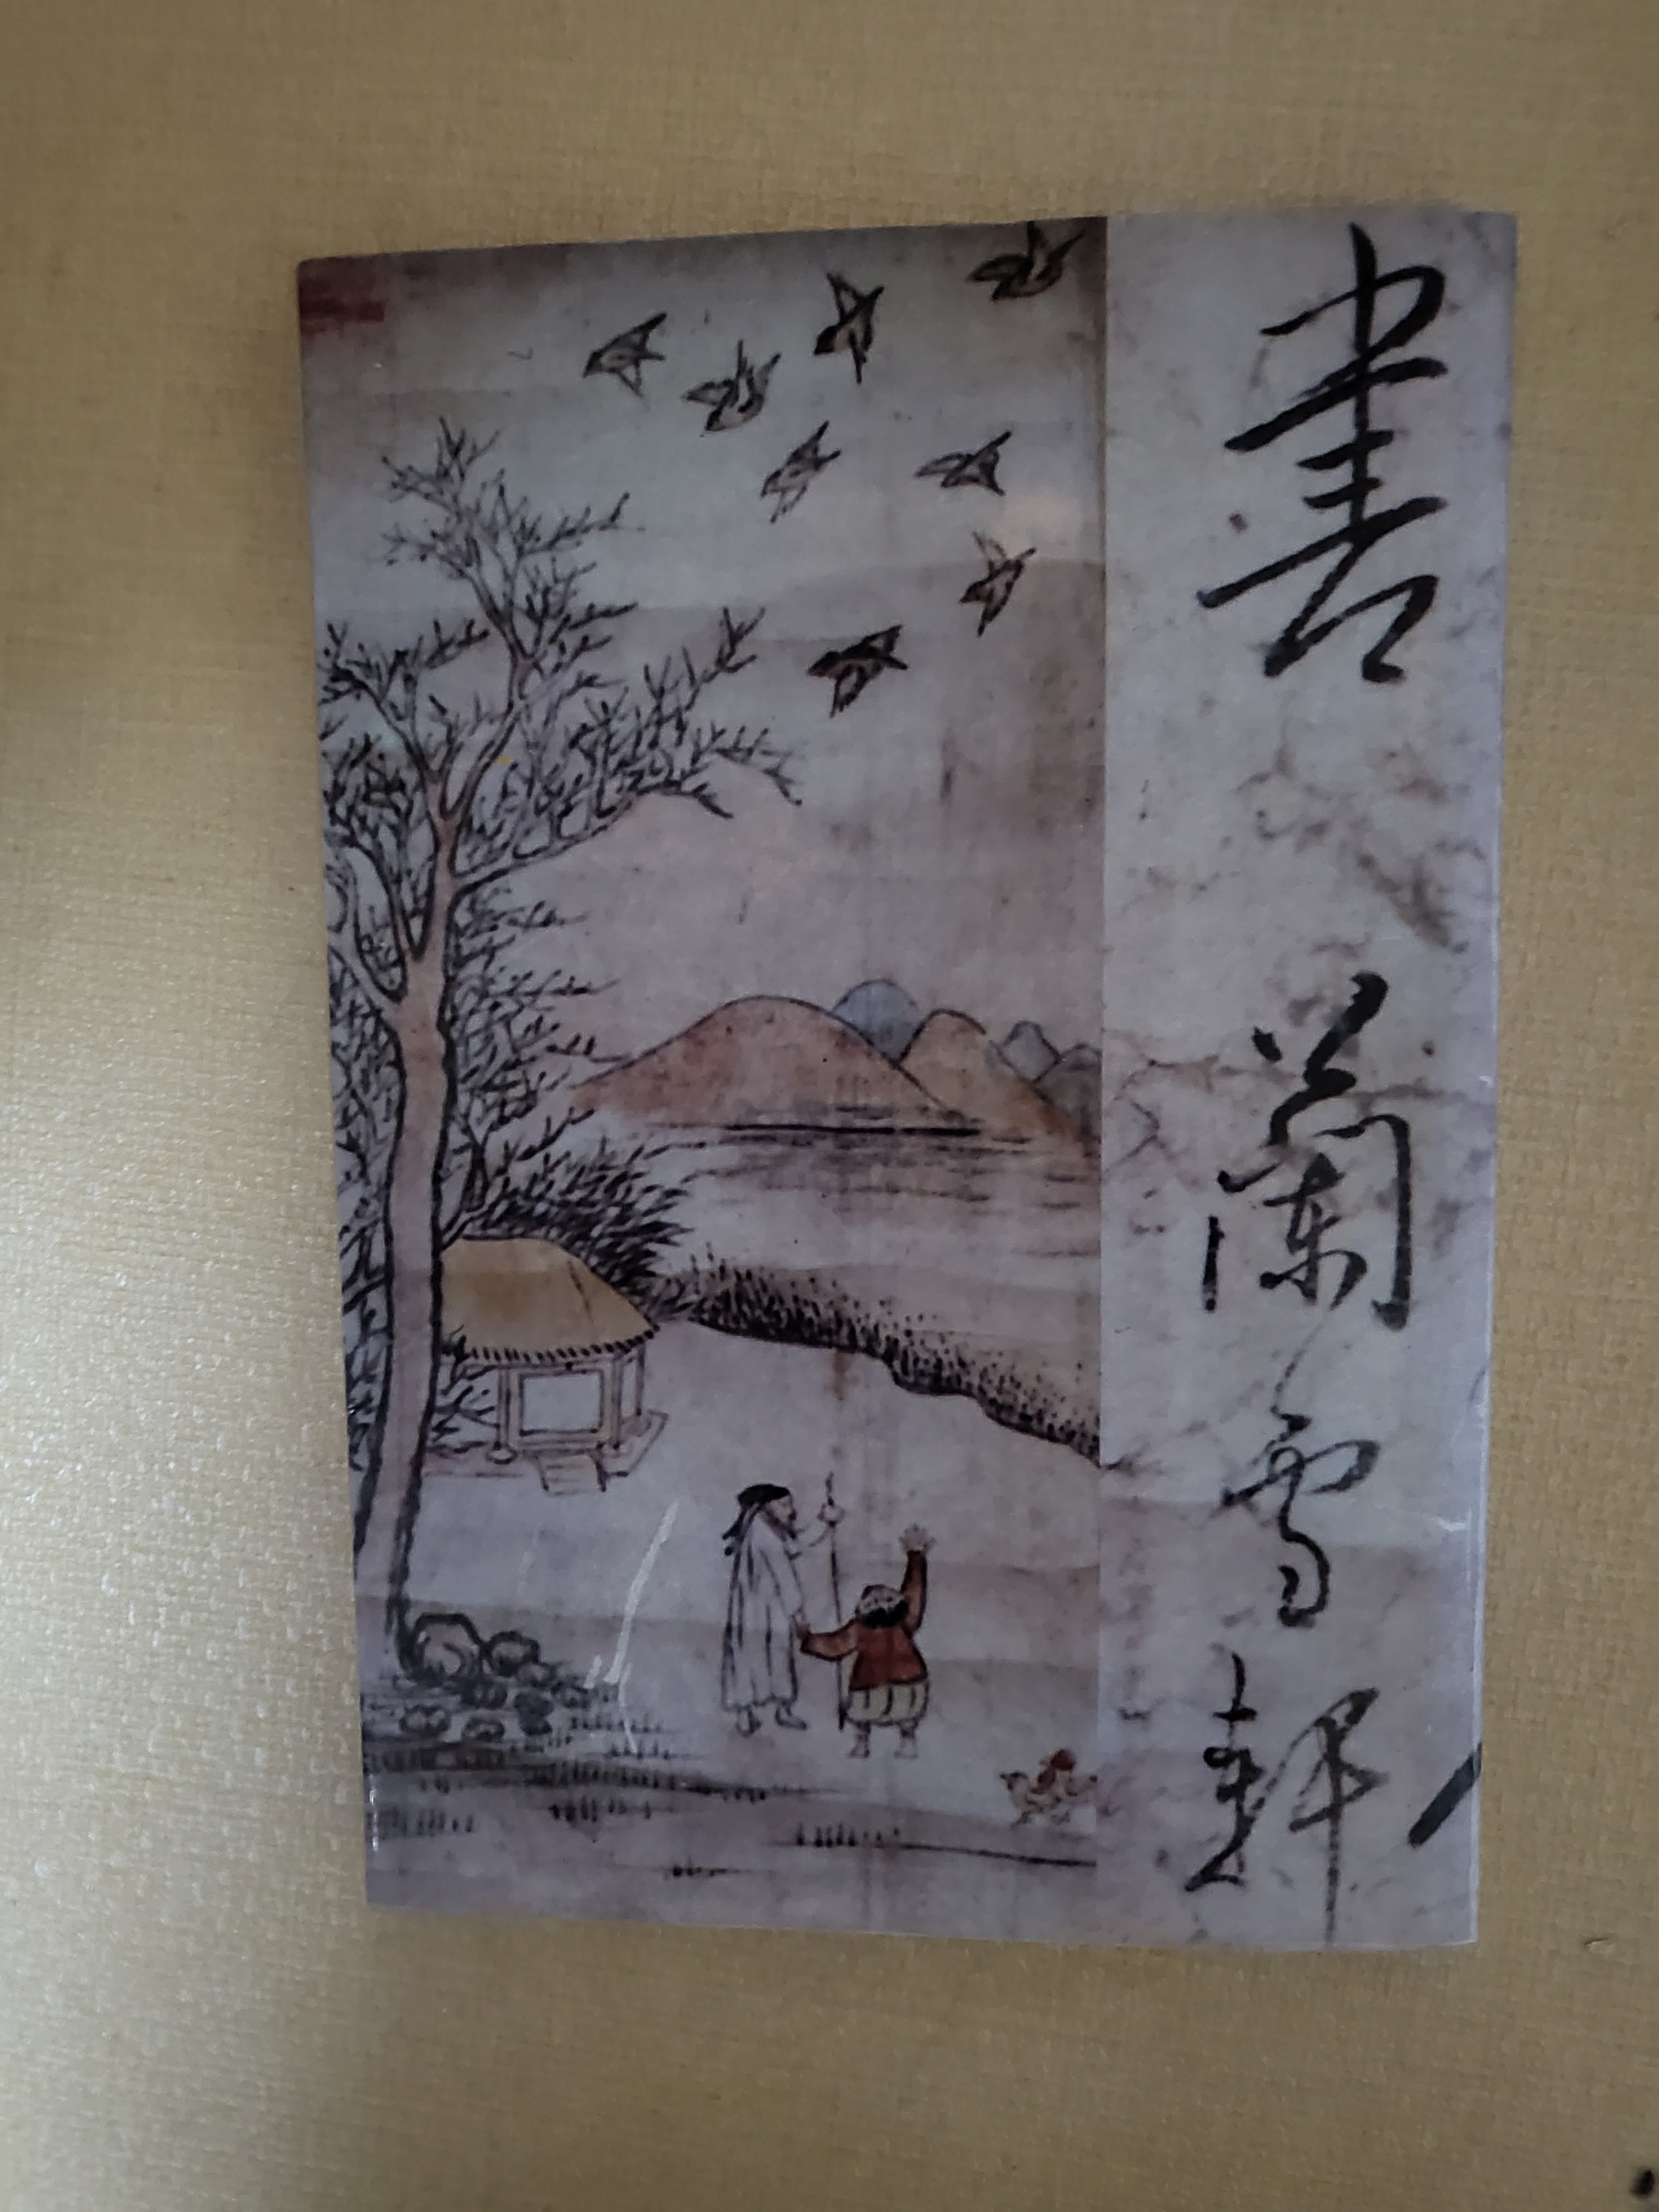 書
蘭雪軒